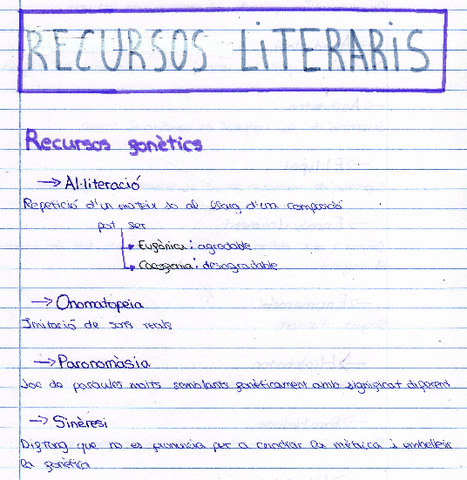 RECURSOS LiTERARiS
Recursos fonètics
→ Al·literació
Repetició d'un mateix so al llarg d'una composició
pot ser
Eufònica: agradable
Cacofonia: desagradable
→ Onomatopeia
Imitació de sons reals
→ Paronomàsia
Joc de paraules molts semblants fonèticament amb significat diferent
→ Sinèresi
Diftong que no es pronuncia per a quadrar la mètrica i embellir
la fonètica